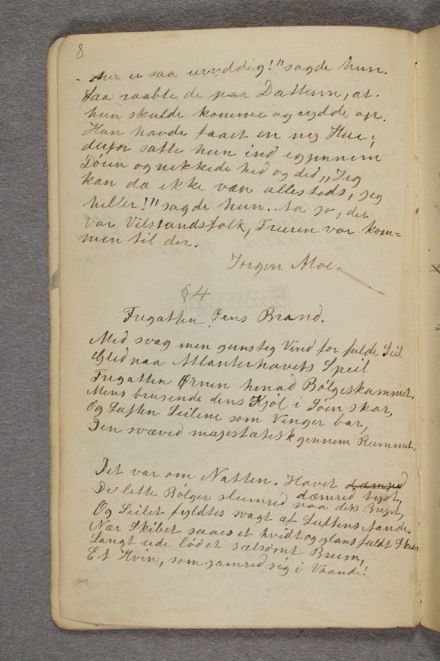 8
her er saa uryddig!" sagde hun.
Saa raabte de paa Datteren, at
hun skulde komme og rydde op.
Hun havde faaet en ny Hue,
derfor satte hun ind igjennem
Døren og nikkede hid og did, "Jeg
kan da ikke være allesteds, jeg
heller!" sagde hun. Aa jo, der
var Velstandsfolk, Frieren var kom=
men til der.
Jørgen Moe.
64
Fregatten Ørns Brand.
Med svag men gunstig Vind for fulde Seil
Gled paa Atlanterhavets Speil
Fregatten Ørnen henad Bølgeskummet.
Mens brusende dens Kjøl i Søen skar,
Og Luften Seilene som Vinger bar,
Den svæved majestætisk gennem Rummet.
Det var om Natten. Havet dæmred
dæmred tyst,
De lette Bølger slumred paa dets Bryst,
Og Seilet fyldtes svagt af Luftens Aande.
Nær Skibet saaes et hvidt og glansfuldt
Langt ude lød et sælsomt Brum,
Et Hvin, som jamred sig i Vaande!